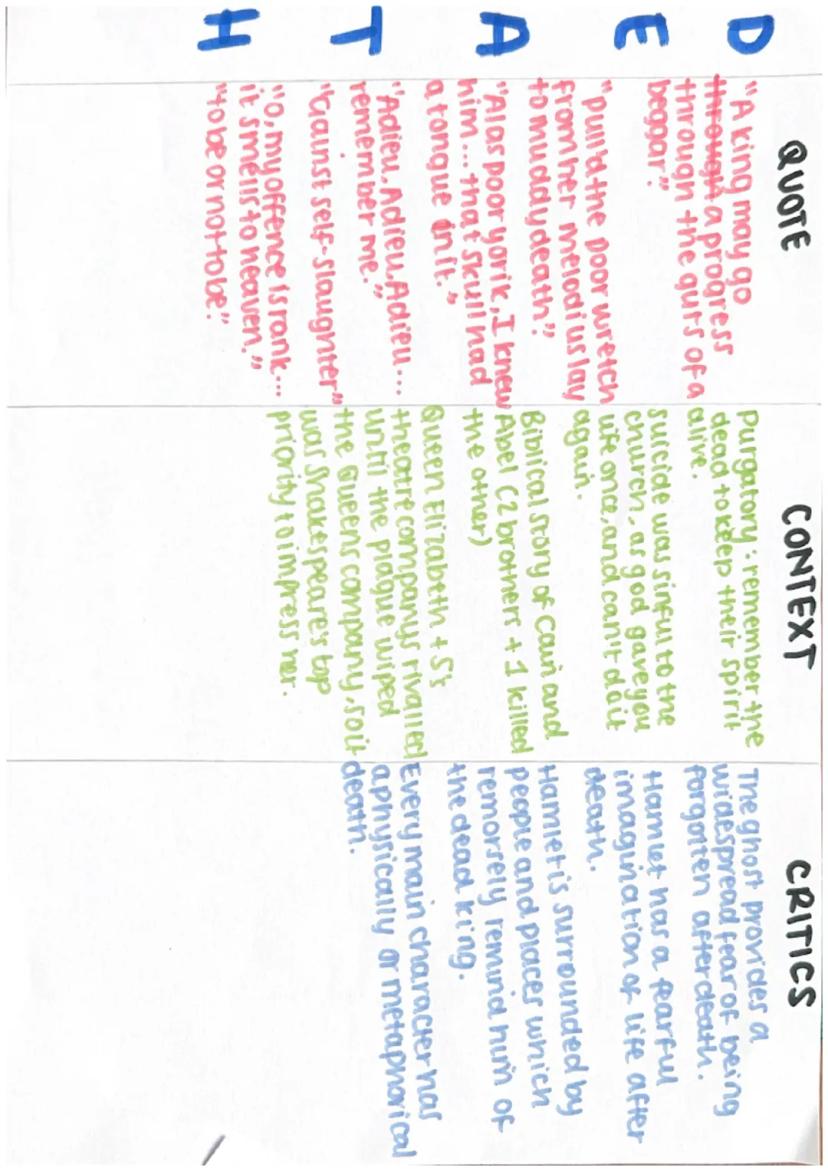 DEATH
QUOTE
"A king may go
through a progress
through the guts of a
beggar."
"pull'd the poor wretch
from her melodius lay
to muddy death."
"Alas poor yorik, I knew
him... that skull had
a tongue in it."
"Adieu, Adieu, Adieu...
remember me."
"Gainst self-slaughter"
"O, my offence is rank...
it smells to heaven."
"to be or not to be."
CONTEXT
Purgatory: remember the
dead to keep their spirit
alive.
suicide was sinful to the
church, as god gave you
life once, and can't do it
again.
Biblical story of Cain and
Abel (2 brothers + 1 killed
the other)
Queen Elizabeth + S's
theatre companys rivalled
until the plague wiped
the Queens company, so it
was Shakespeare's top
priority to impress her.
CRITICS
The ghost provides a
widespread fear of being
forgotten after death.
Hamlet has a fearful
imagination of life after
death.
Hamlet is surrounded by
people and places which
remorsely remind him of
the dead king.
Every main character has
a physically or metaphorical
death.